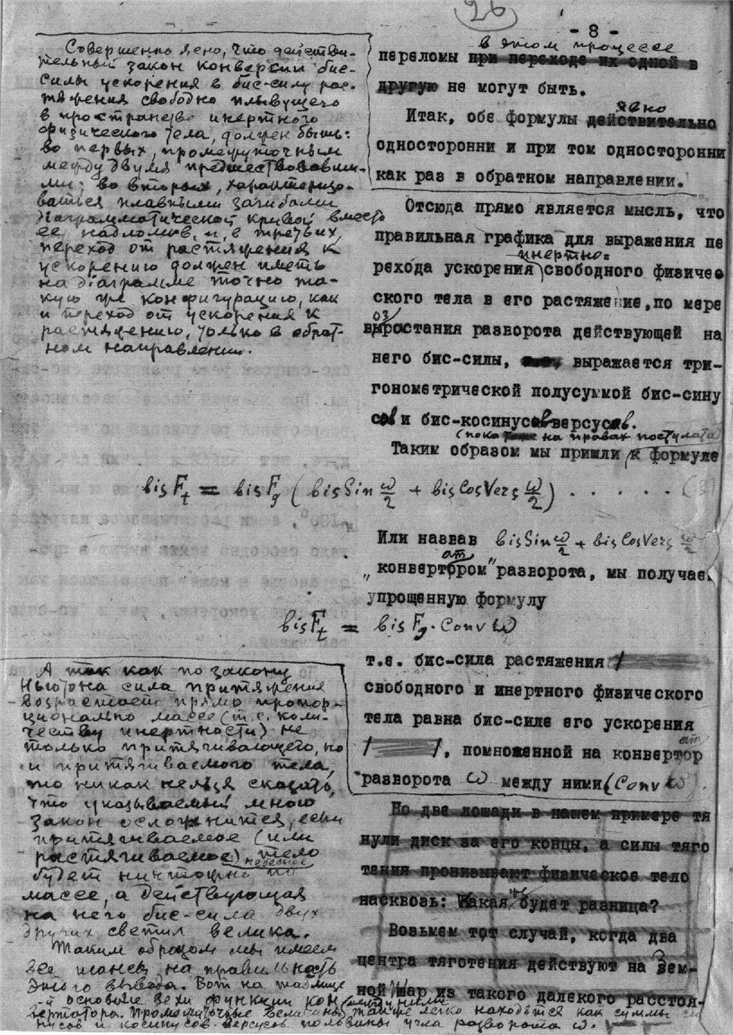 26
- 8 -
Совершенно ясно, что действи-
тельный закон конверсии бис-
силы ускорения в бис-силу рас-
тяжения свободно плывущего
в пространство инертного
физического тела, должен быть:
во первых, промежуточным
между двумя предшествовавши-
ми; во вторых, характеризо-
ваться плавными загибами
диаграмматической кривой вместо
ее надломов, и, в третьих,
переход от растяжения к
ускорению должен иметь
на диаграмме точно та-
кую же конфигурацию, как
и переход от ускорения к
растяжению, только в обрат-
ном направлении.
в этом процессе
переломы при переходе их одной в
другую не могут быть.
явно
Итак, обе формулы действительно
односторонни и при том односторонни
как раз в обратном направлении.
Отсюда прямо является мысль, что
правильная графика для выражения пе
инертно-
рехода ускорения свободного физиче
ского тела в его растяжение, по мере
воз
вырастания разворота действующей на
него бис-силы, выражается три-
гонометрической полусуммой бис-сину
сов и бис-косинусов версусов.
(пока на правах постулата)
Таким образом мы пришли к формуле
bis Ft = bis Fg (bis Sin ω/2 + bis Cos Vers ω/2) . . . . .
Или назвав bis Sin ω/2 + bis Cos Vers ω/2
ат
„конвертором" разворота, мы получае
упрощенную формулу
bis Ft = bis Fg · Conv ω
т.е. бис-сила растяжения
свободного и инертного физического
тела равна бис-силе его ускорения
, помноженной на конвертор
разворота ω между ними (Conv ω)
А так как по закону
Ньютона сила притяжения
возрастает прямо пропор-
ционально массе (т.е. коли-
честву инертности) не
только притягивающего, но
и притягиваемого тела,
то никак нельзя сказать,
что указываемый мною
закон осложнится, если
притягиваемое (или
растягиваемое) тело
небесное
будет ничтожно по
массе, а действующая
на него бис-сила двух
других светил велика.
Таким образом мы имеем
все шансы на правильность
этого вывода. Вот на таблице
основные вехи функции кон
вертатора. Промежуточные величины также легко находятся как суммы си
нусов и косинусов-версусов половины угла разворота ω.
Но две лошади в нашем примере тя
нули диск за его концы, а силы тяго
тения пронизывают физическое тело
насквозь: Какая будет разница?
Возьмем тот случай, когда два
центра тяготения действуют на Зем-
ной шар из такого далекого расстоя-